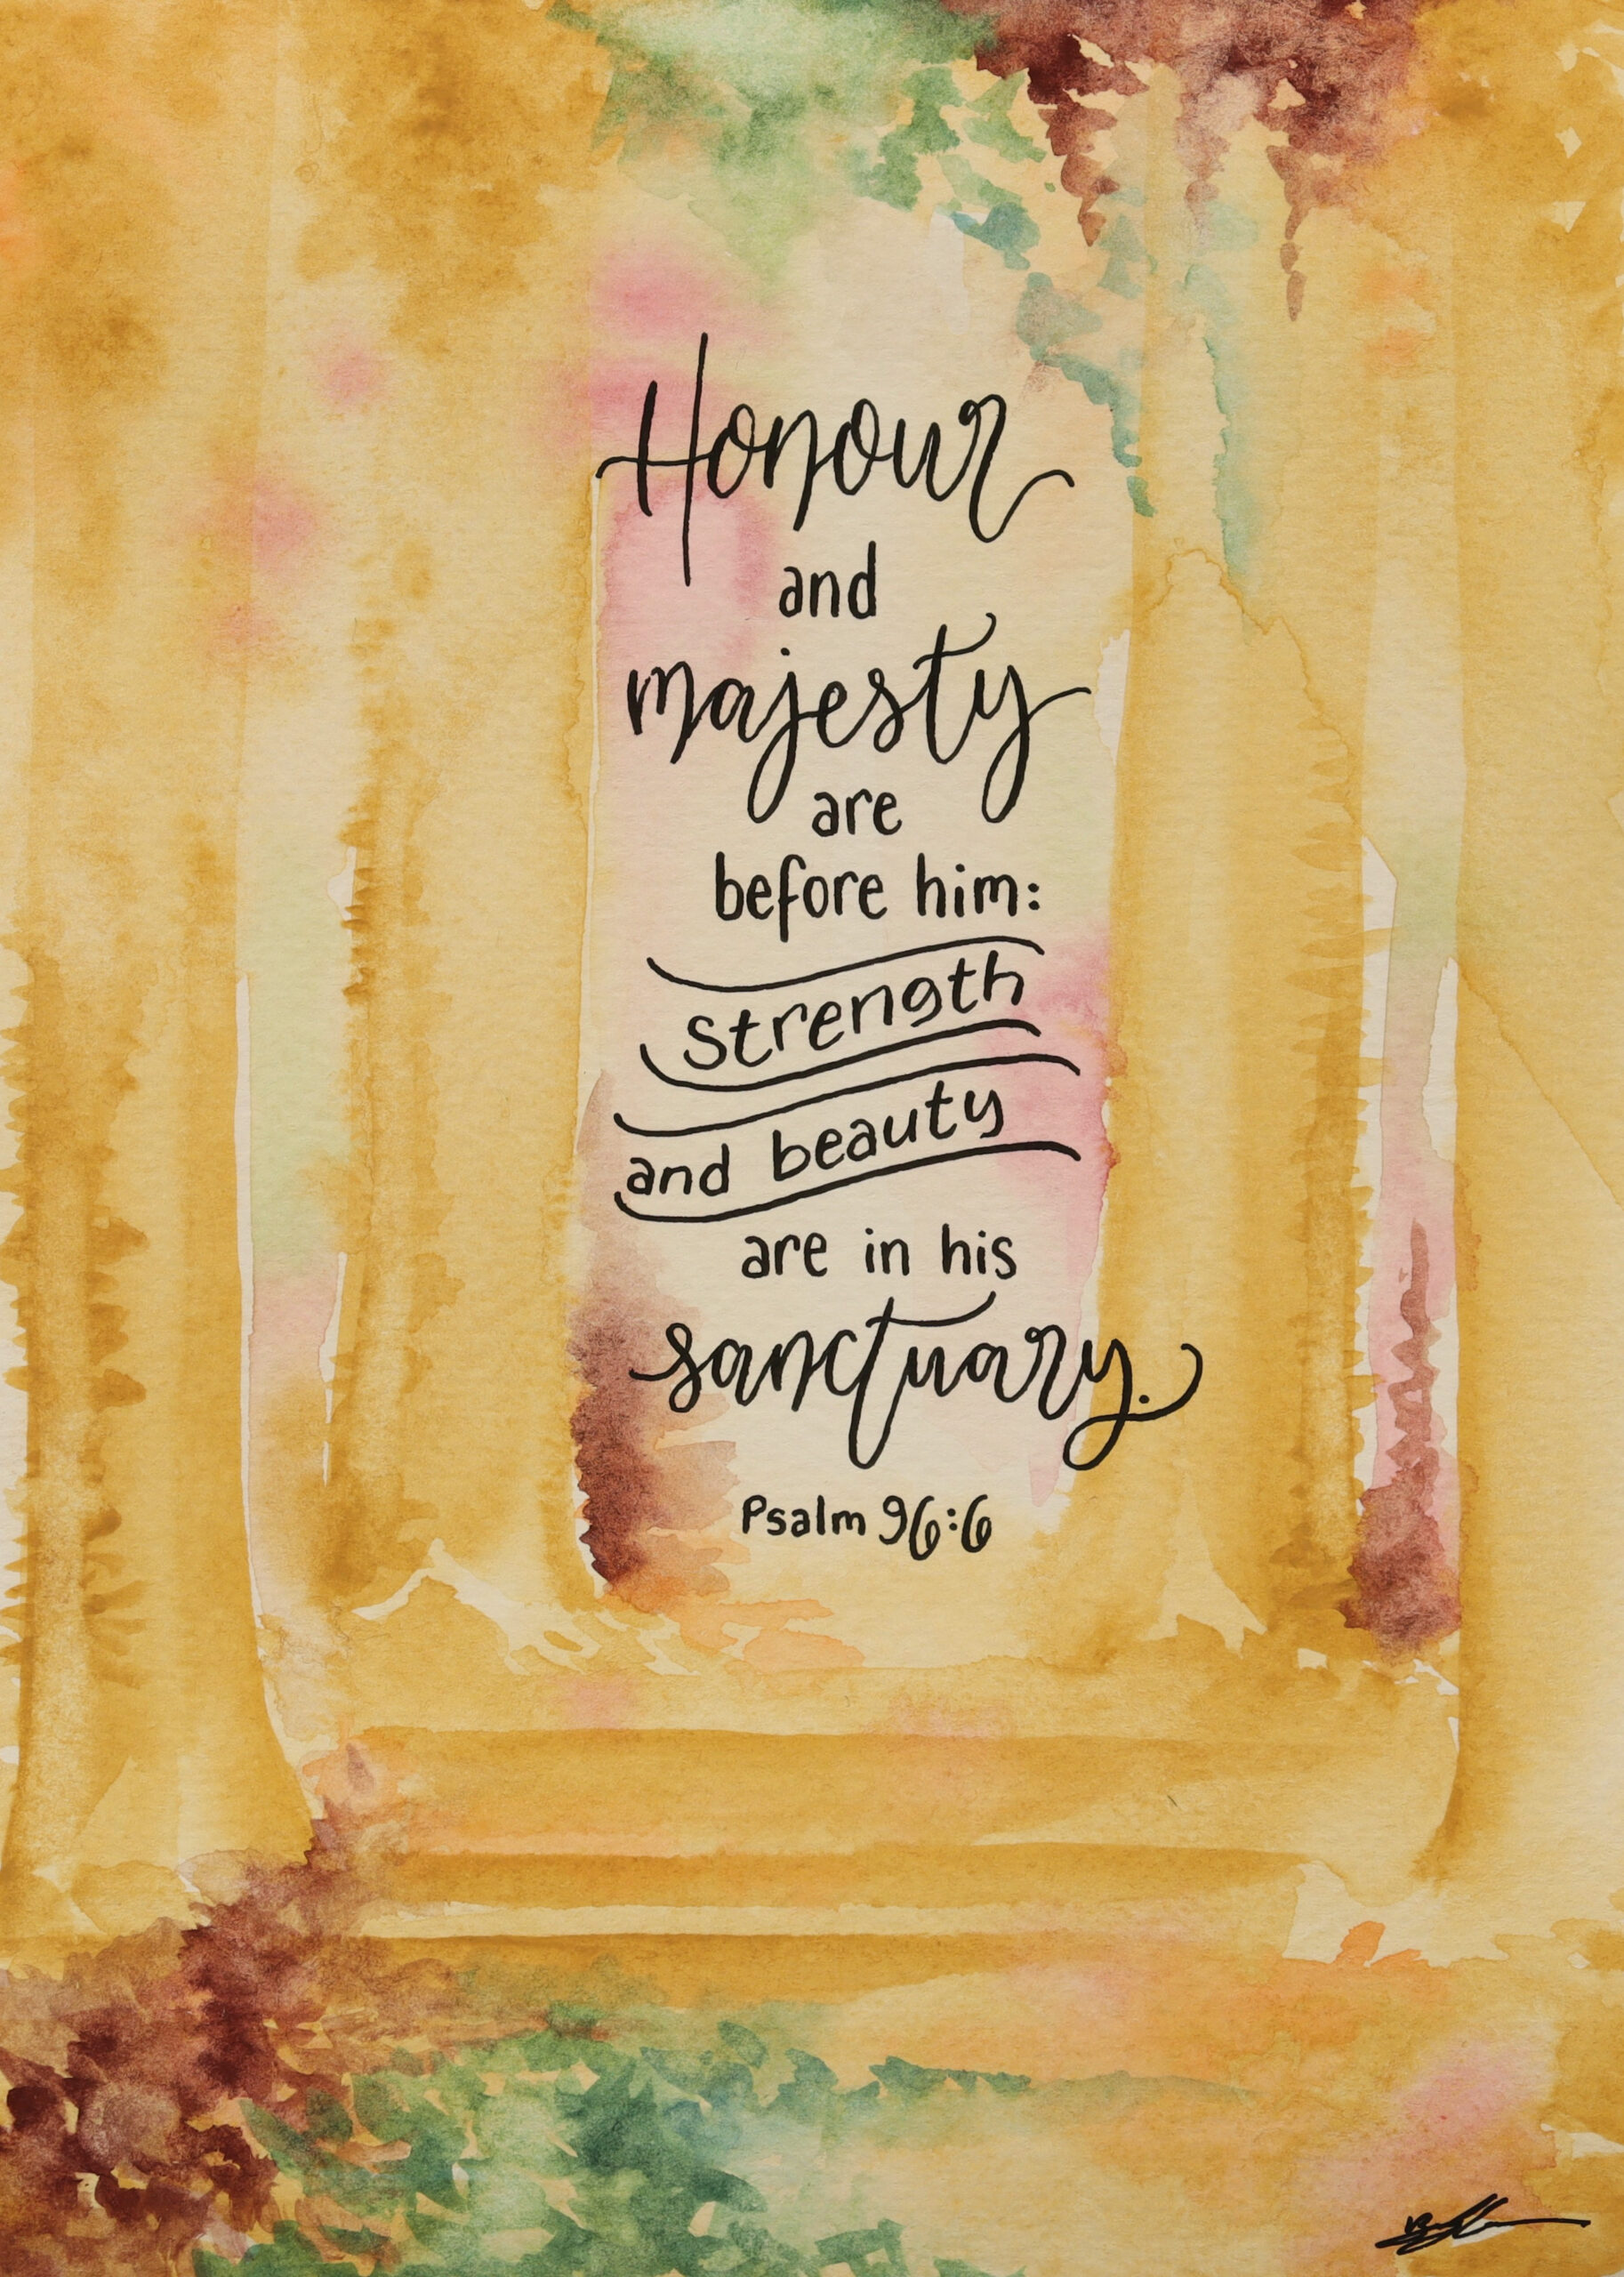 Honour
and
majesty
are
before him:
strength
and beauty
are in his
sanctuary.
Psalm 96:6